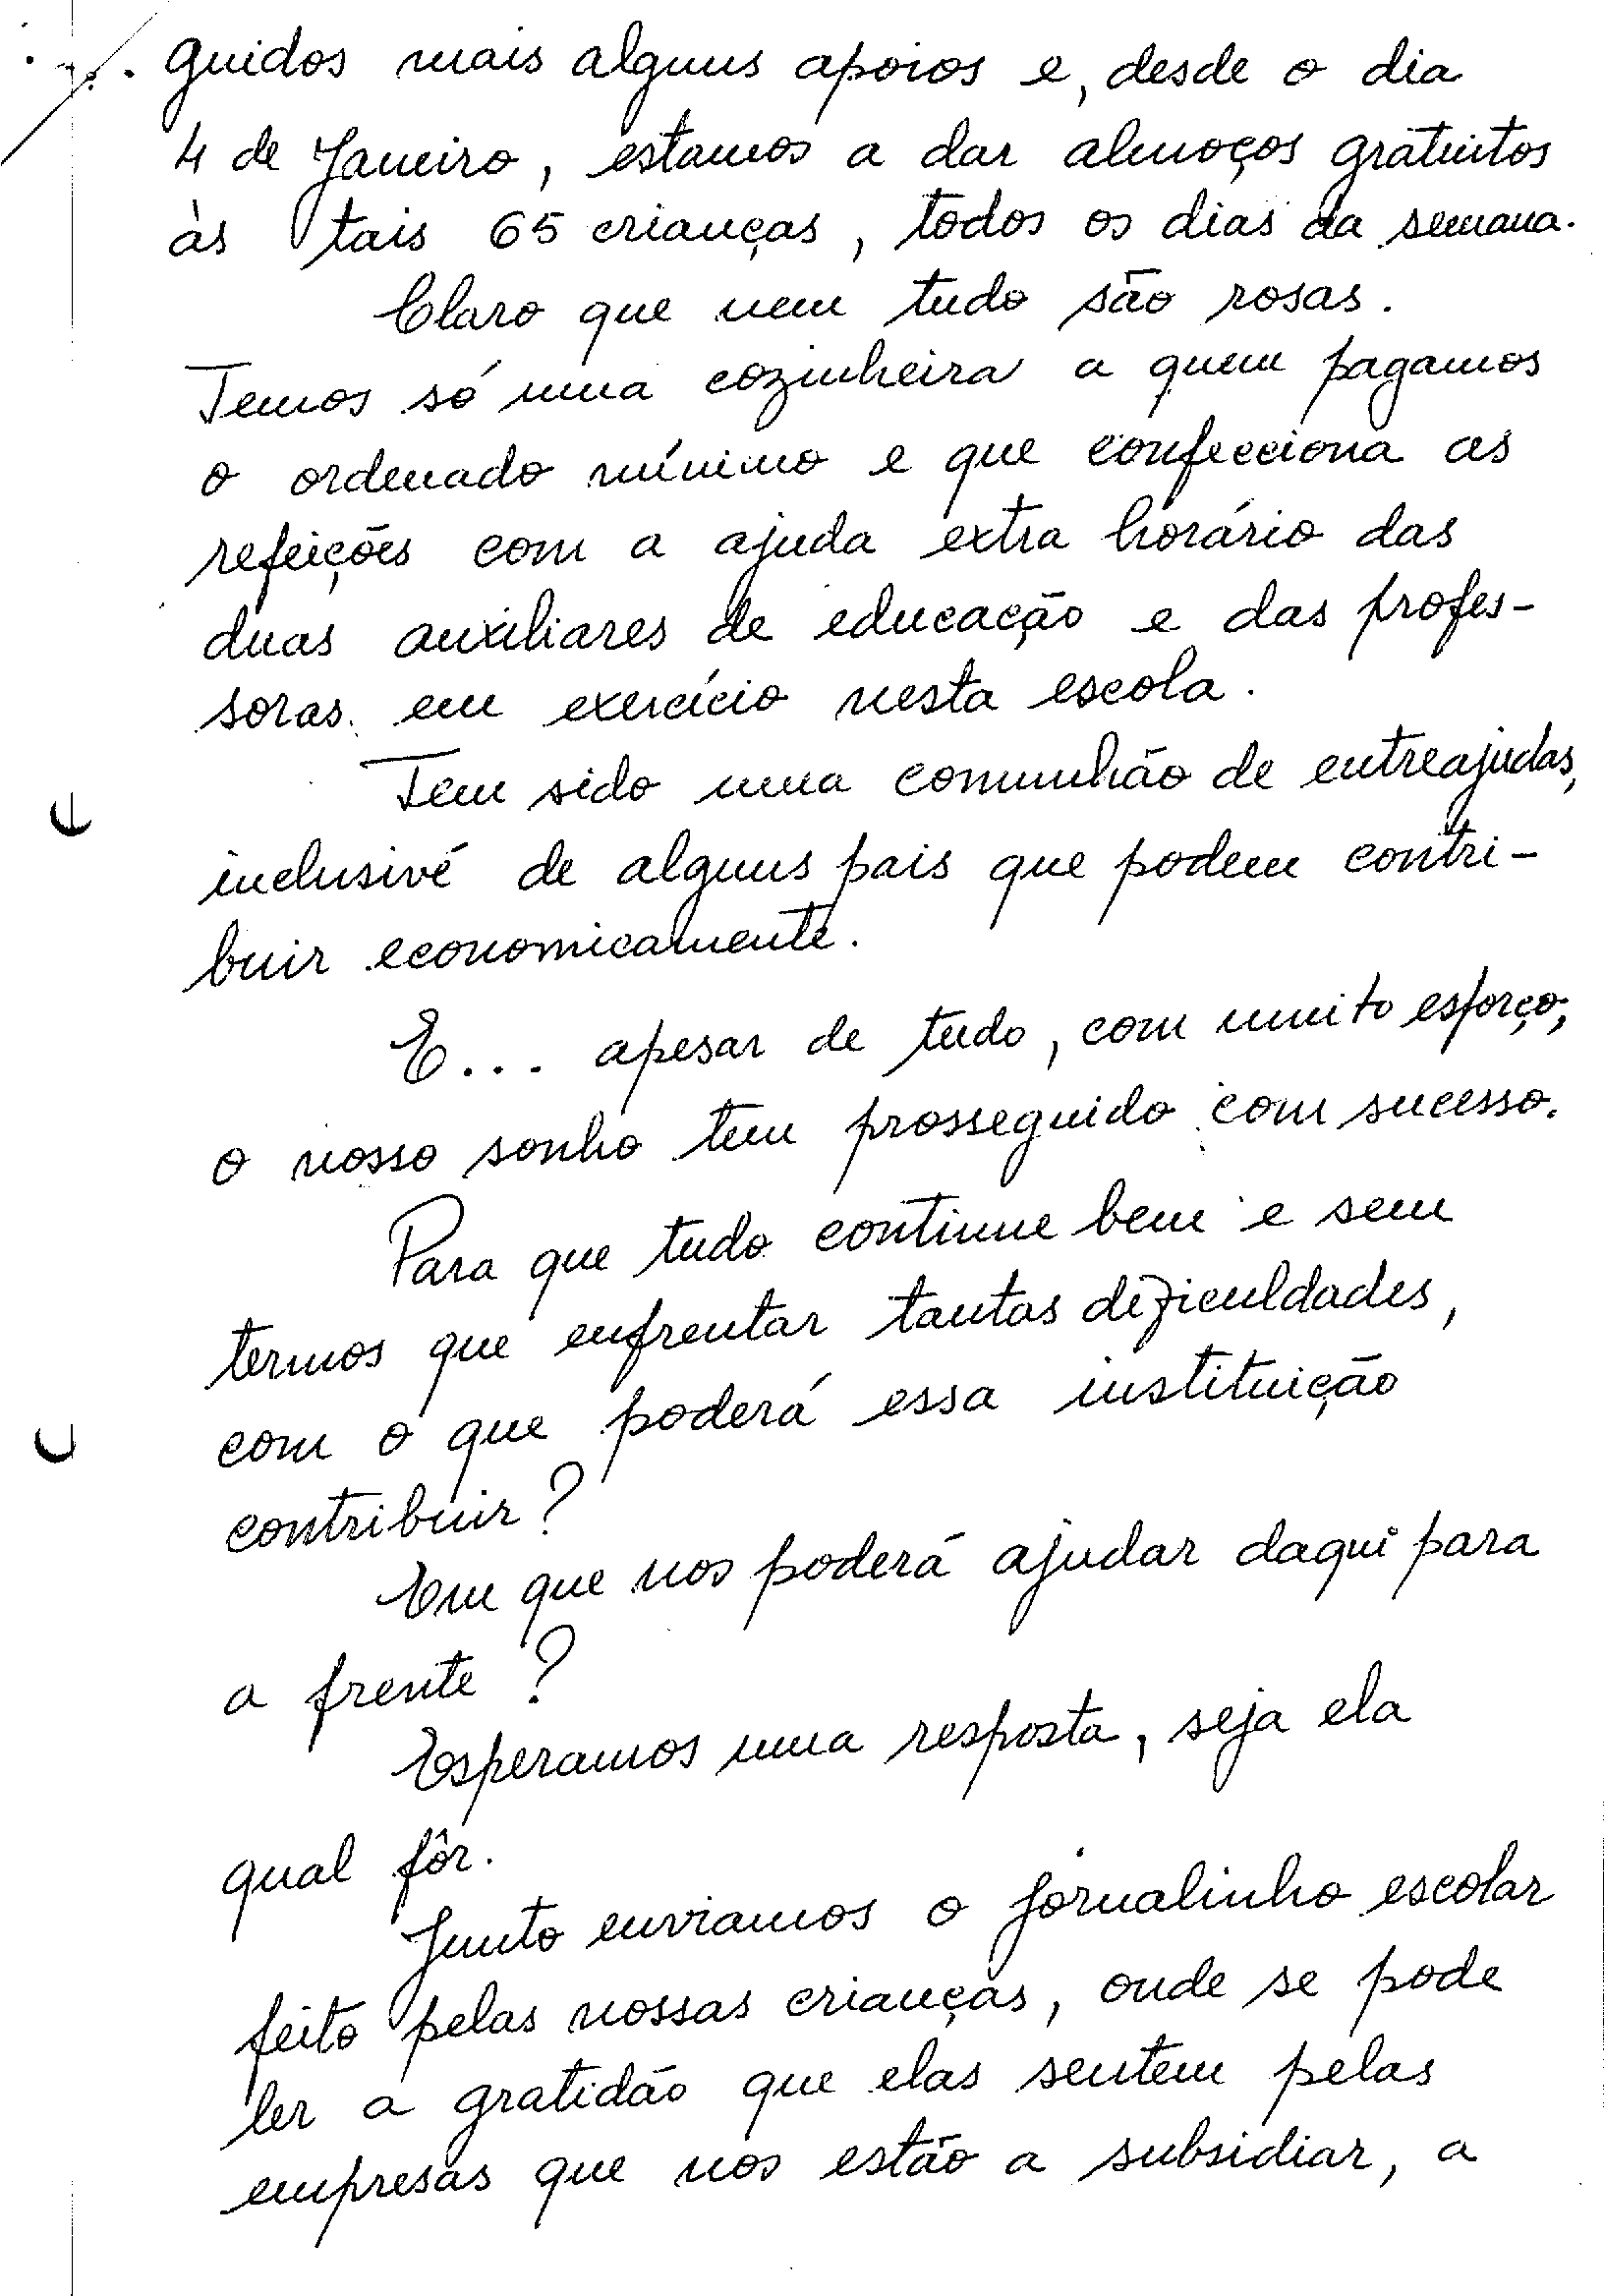 guidos mais alguns apoios e, desde o dia
4 de Janeiro, estamos a dar almoços gratuitos
às tais 65 crianças, todos os dias da semana.
Claro que nem tudo são rosas.
Temos só uma cozinheira a quem pagamos
o ordenado mínimo e que confecciona as
refeições com a ajuda extra horário das
duas auxiliares de educação e das profes-
soras em exercício nesta escola.
Tem sido uma comunhão de entreajudas,
inclusivé de alguns pais que podem contri-
buir economicamente.
E... apesar de tudo, com muito esforço,
o nosso sonho tem prosseguido com sucesso.
Para que tudo continue bem e sem
termos que enfrentar tantas dificuldades,
com o que poderá essa instituição
contribuir?
Em que nos poderá ajudar daqui para
a frente?
Esperamos uma resposta, seja ela
qual fôr.
Junto enviamos o jornalinho escolar
feito pelas nossas crianças, onde se pode
ler a gratidão que elas sentem pelas
empresas que nos estão a subsidiar, a